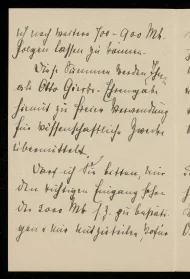 ich noch weitere 700-900 Mk.
folgen lassen zu können.
Diese Summen werden
als Otto Gierke-Ehrengabe
hiermit zu freier Verwendung
für wissenschaftliche Zwecke
übermittelt.
Darf ich Sie bitten, mir
den richtigen Eingang
der 2000 Mk z. Z. zu bestäti-
gen u. mir mitzuteilen,